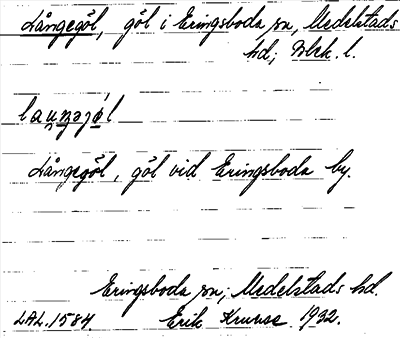 Långegöl, göl i Eringsboda sn, Medelstads
hd; Blek. l.
Långegöl, göl vid Eringsboda by.
Eringsboda sn; Medelstads hd.
LAL.1584. Erik Kruuse 1932.